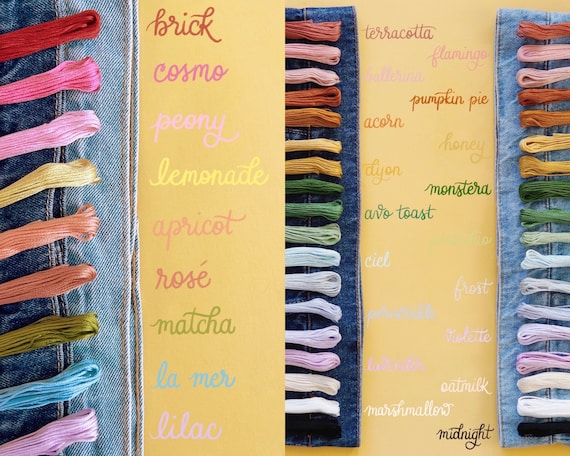 brick
cosmo
peony
lemonade
apricot
rosé
matcha
la mer
lilac
terracotta
flamingo
ballerina
pumpkin pie
acorn
honey
dijon
monstera
avo toast
pistachio
ciel
frost
periwinkle
violette
lavender
oatmilk
marshmallow
midnight